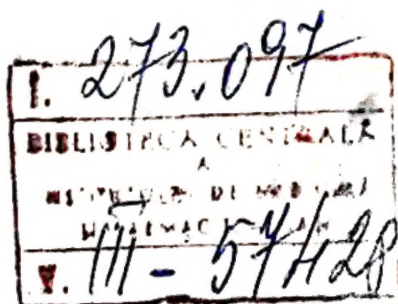 I. 273.097
BIBLIOTECA CENTRALĂ
A
DE
V. III - 57428